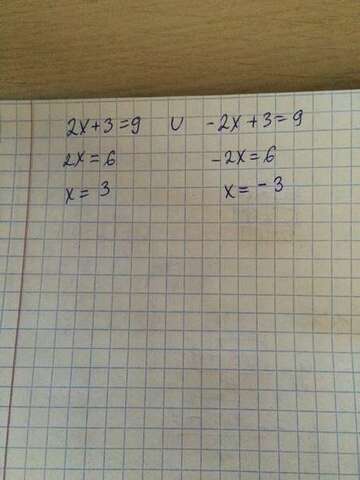 2x+3=9 ∪ -2x+3=9
2x=6 -2x=6
x=3 x=-3